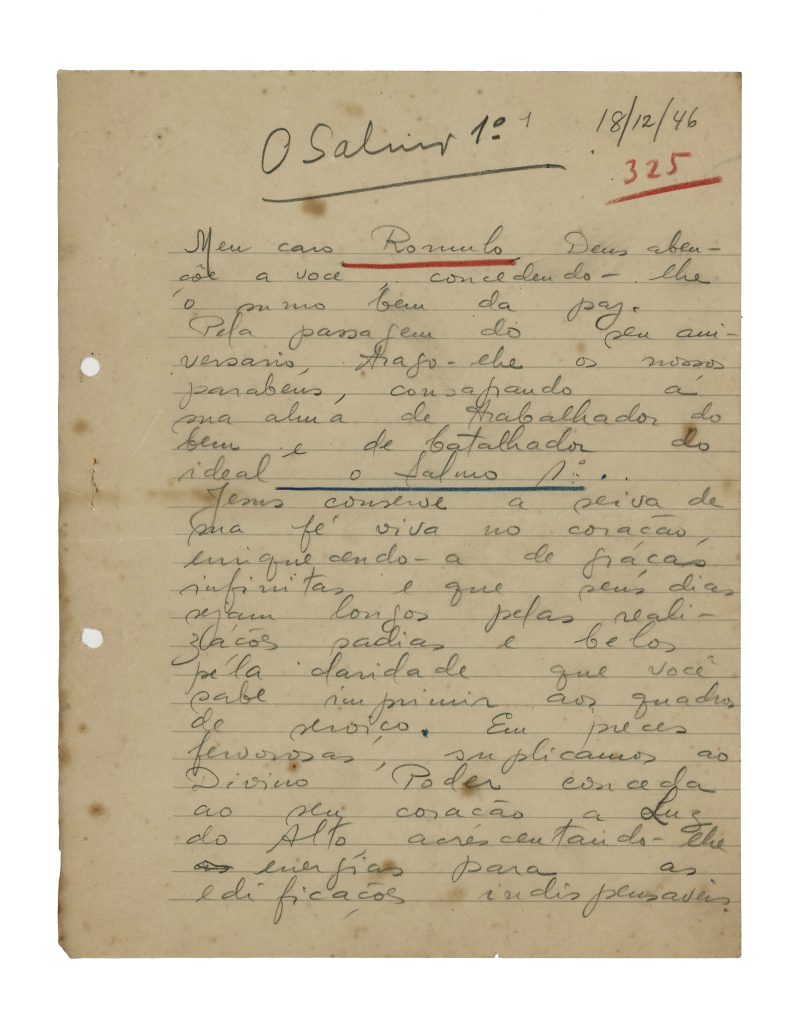 O Salmo 1º 1
18/12/46
325
Meu caro Romulo, Deus aben-
çõe a você, concedendo-lhe
o sumo bem da paz.
Pela passagem do seu ani-
versario, trago-lhe os nossos
parabéns, consagrando á
sua alma de trabalhador do
bem e de batalhador do
ideal o Salmo 1º.
Jesus conserve a seiva de
sua fé viva no coração,
enriquecendo-a de graças
infinitas e que seus dias
sejam longos pelas reali-
zações sadias e belos
pela claridade que você
sabe imprimir aos quadros
de serviço. Em preces
fervorosas, suplicamos ao
Divino Poder conceda
ao seu coração a Luz
do Alto, acrescentando-lhe
energías para as
edificações indispensaveis.